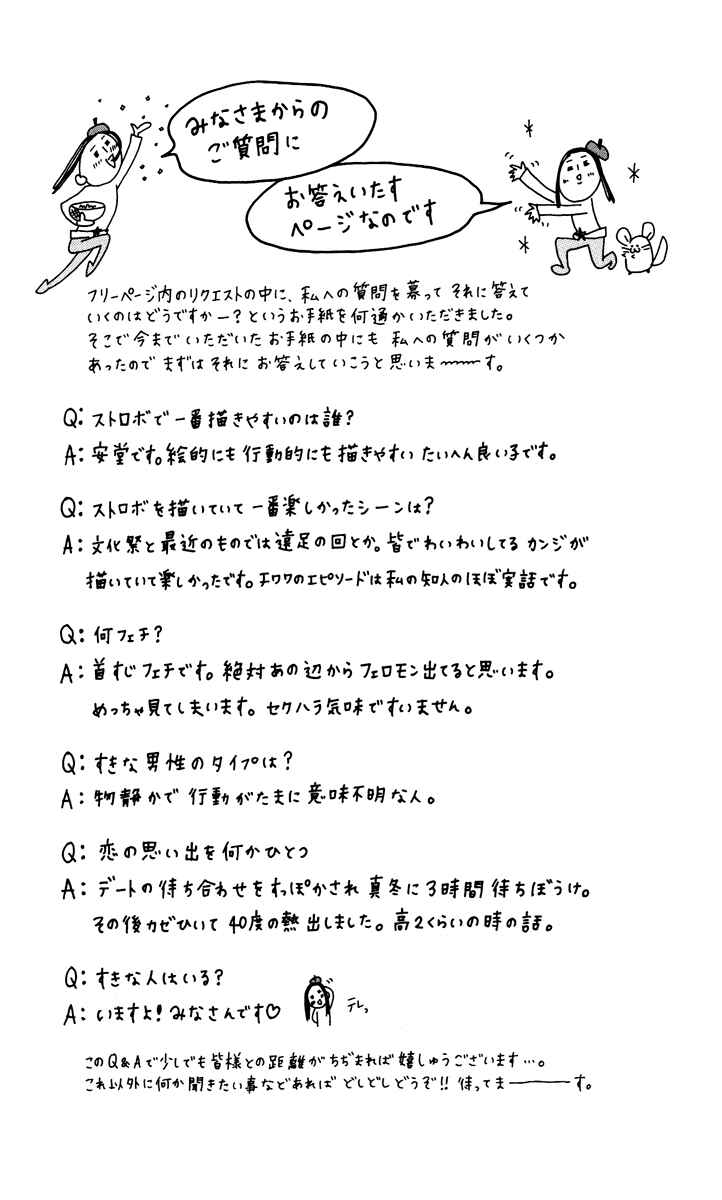 みなさまからの
ご質問に
お答えいたす
ページなのです
フリーページ内のリクエストの中に、私への質問を募って それに答えて
いくのはどうですかー?というお手紙を何通かいただきました。
そこで今まで いただいた お手紙の中にも 私への質問が いくつか
あったので まずは それに お答えしていこうと思いま〜〜す。
Q: ストロボで一番描きやすいのは誰?
A: 安堂です。絵的にも 行動的にも 描きやすい たいへん良い子です。
Q: ストロボを描いていて 一番楽しかったシーンは?
A: 文化祭と最近のものでは遠足の回とか。皆でわいわいしてる カンジが
描いていて楽しかったです。チワワのエピソードは私の知人のほぼ実話です。
Q: 何フェチ?
A: 首すじフェチです。絶対あの辺からフェロモン出てると思います。
めっちゃ見てしまいます。セクハラ気味ですいません。
Q: すきな男性のタイプは?
A: 物静かで 行動がたまに意味不明な人。
Q: 恋の思い出を何かひとつ
A: デートの待ち合わせをすっぽかされ 真冬に3時間待ちぼうけ。
その後カゼひいて 40度の熱出しました。高2くらいの時の話。
Q: すきな人はいる?
A: いますよ!みなさんです♡
テレッ
このQ&Aで少しでも皆様との距離がちぢまれば嬉しゅうございます…。
これ以外に何か聞きたい事などあれば どしどしどうぞ!! 待ってま―――す。